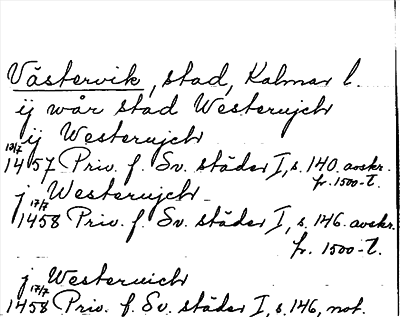 Västervik, stad, Kalmar l.
ij wår stad Westerwjch
ij Westerwjch
18/7 1457 Priv. f. Sv. städer I, s. 140. avskr.
fr. 1500-t.
j Westerwjch
17/7 1458 Priv. f. Sv. städer I, s. 146. avskr.
fr. 1500-t.
j Westerwich
17/7 1458 Priv. f. Sv. städer I, s. 146, not.